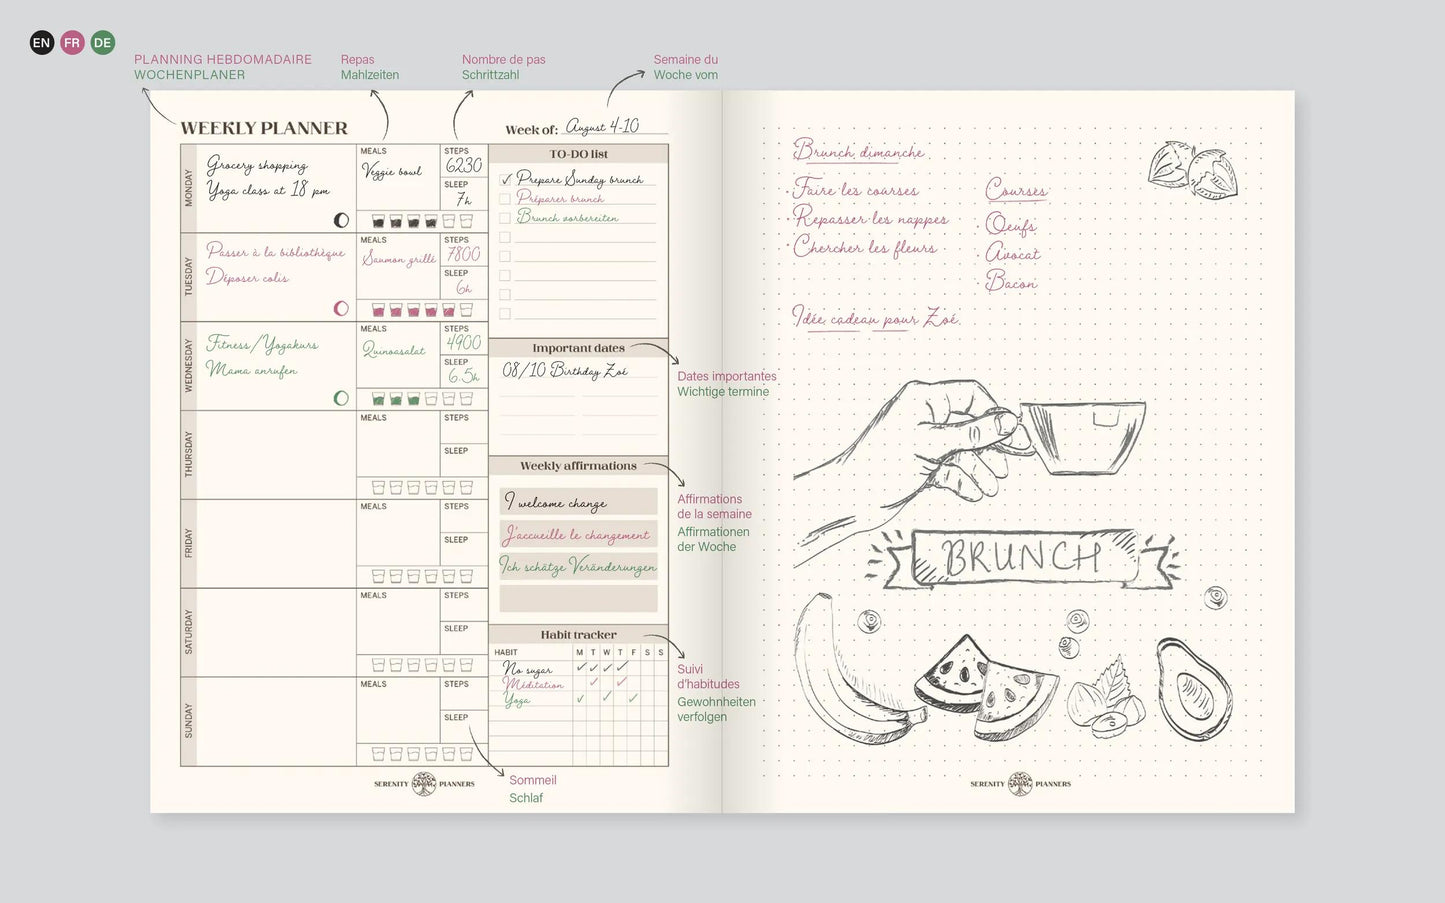 EN FR DE
PLANNING HEBDOMADAIRE
WOCHENPLANER
Repas
Mahlzeiten
Nombre de pas
Schrittzahl
Semaine du
Woche vom
WEEKLY PLANNER
Week of: August 4-10
MONDAY
Grocery shopping
Yoga class at 18 pm
MEALS
Veggie bowl
STEPS
6230
SLEEP
7h
TUESDAY
Passer à la bibliothèque
Déposer colis
MEALS
Saumon grillé
STEPS
7800
SLEEP
6h
WEDNESDAY
Fitness/Yogakurs
Mama anrufen
MEALS
Quinoasalat
STEPS
4900
SLEEP
6.5h
THURSDAY
MEALS
STEPS
SLEEP
FRIDAY
MEALS
STEPS
SLEEP
SATURDAY
MEALS
STEPS
SLEEP
SUNDAY
MEALS
STEPS
SLEEP
TO-DO list
Prepare Sunday brunch
Préparer brunch
Brunch vorbereiten
Important dates
08/10 Birthday Zoé
Dates importantes
Wichtige termine
Weekly affirmations
I welcome change
J'accueille le changement
Ich schätze Veränderungen
Affirmations
de la semaine
Affirmationen
der Woche
Habit tracker
HABIT M T W T F S S
No sugar
Méditation
Yoga
Suivi
d'habitudes
Gewohnheiten
verfolgen
Sommeil
Schlaf
SERENITY PLANNERS
Brunch dimanche
Faire les courses
Repasser les nappes
Chercher les fleurs
Courses
Oeufs
Avocat
Bacon
Idée cadeau pour Zoé
BRUNCH
SERENITY PLANNERS